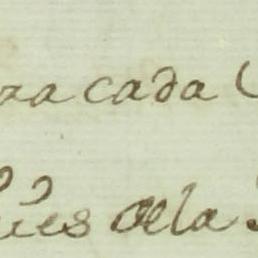 ra cada
ues dela